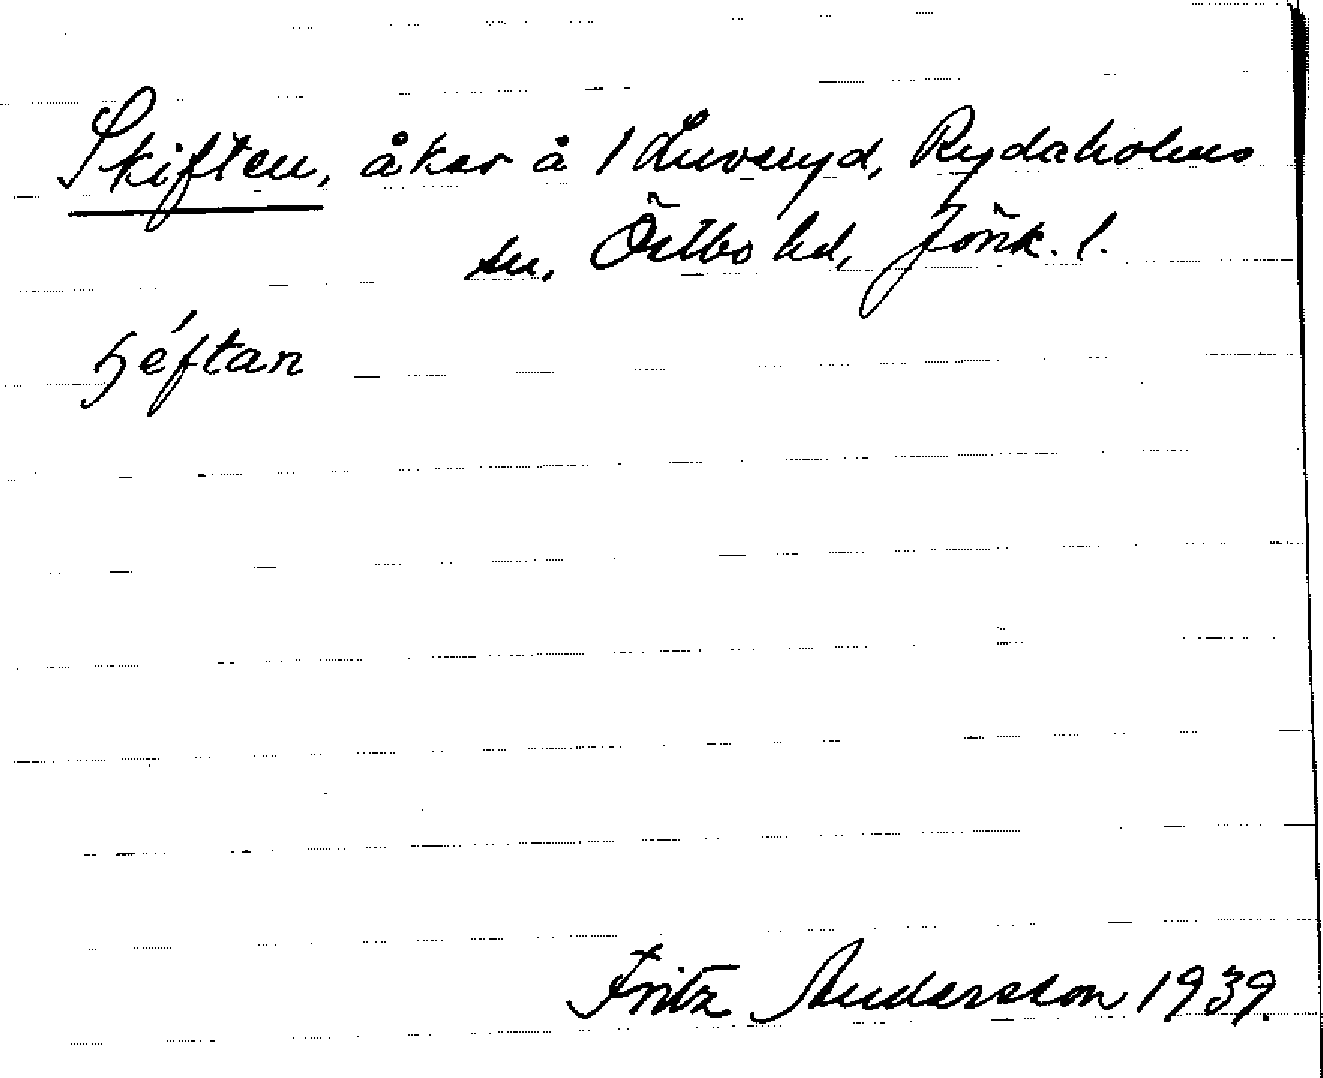 Skiften, åker å 1 Luveryd, Rydaholms
sn, Östbo hd, Jönk. l.
ɧéftan
Fritz Andersson 1939.